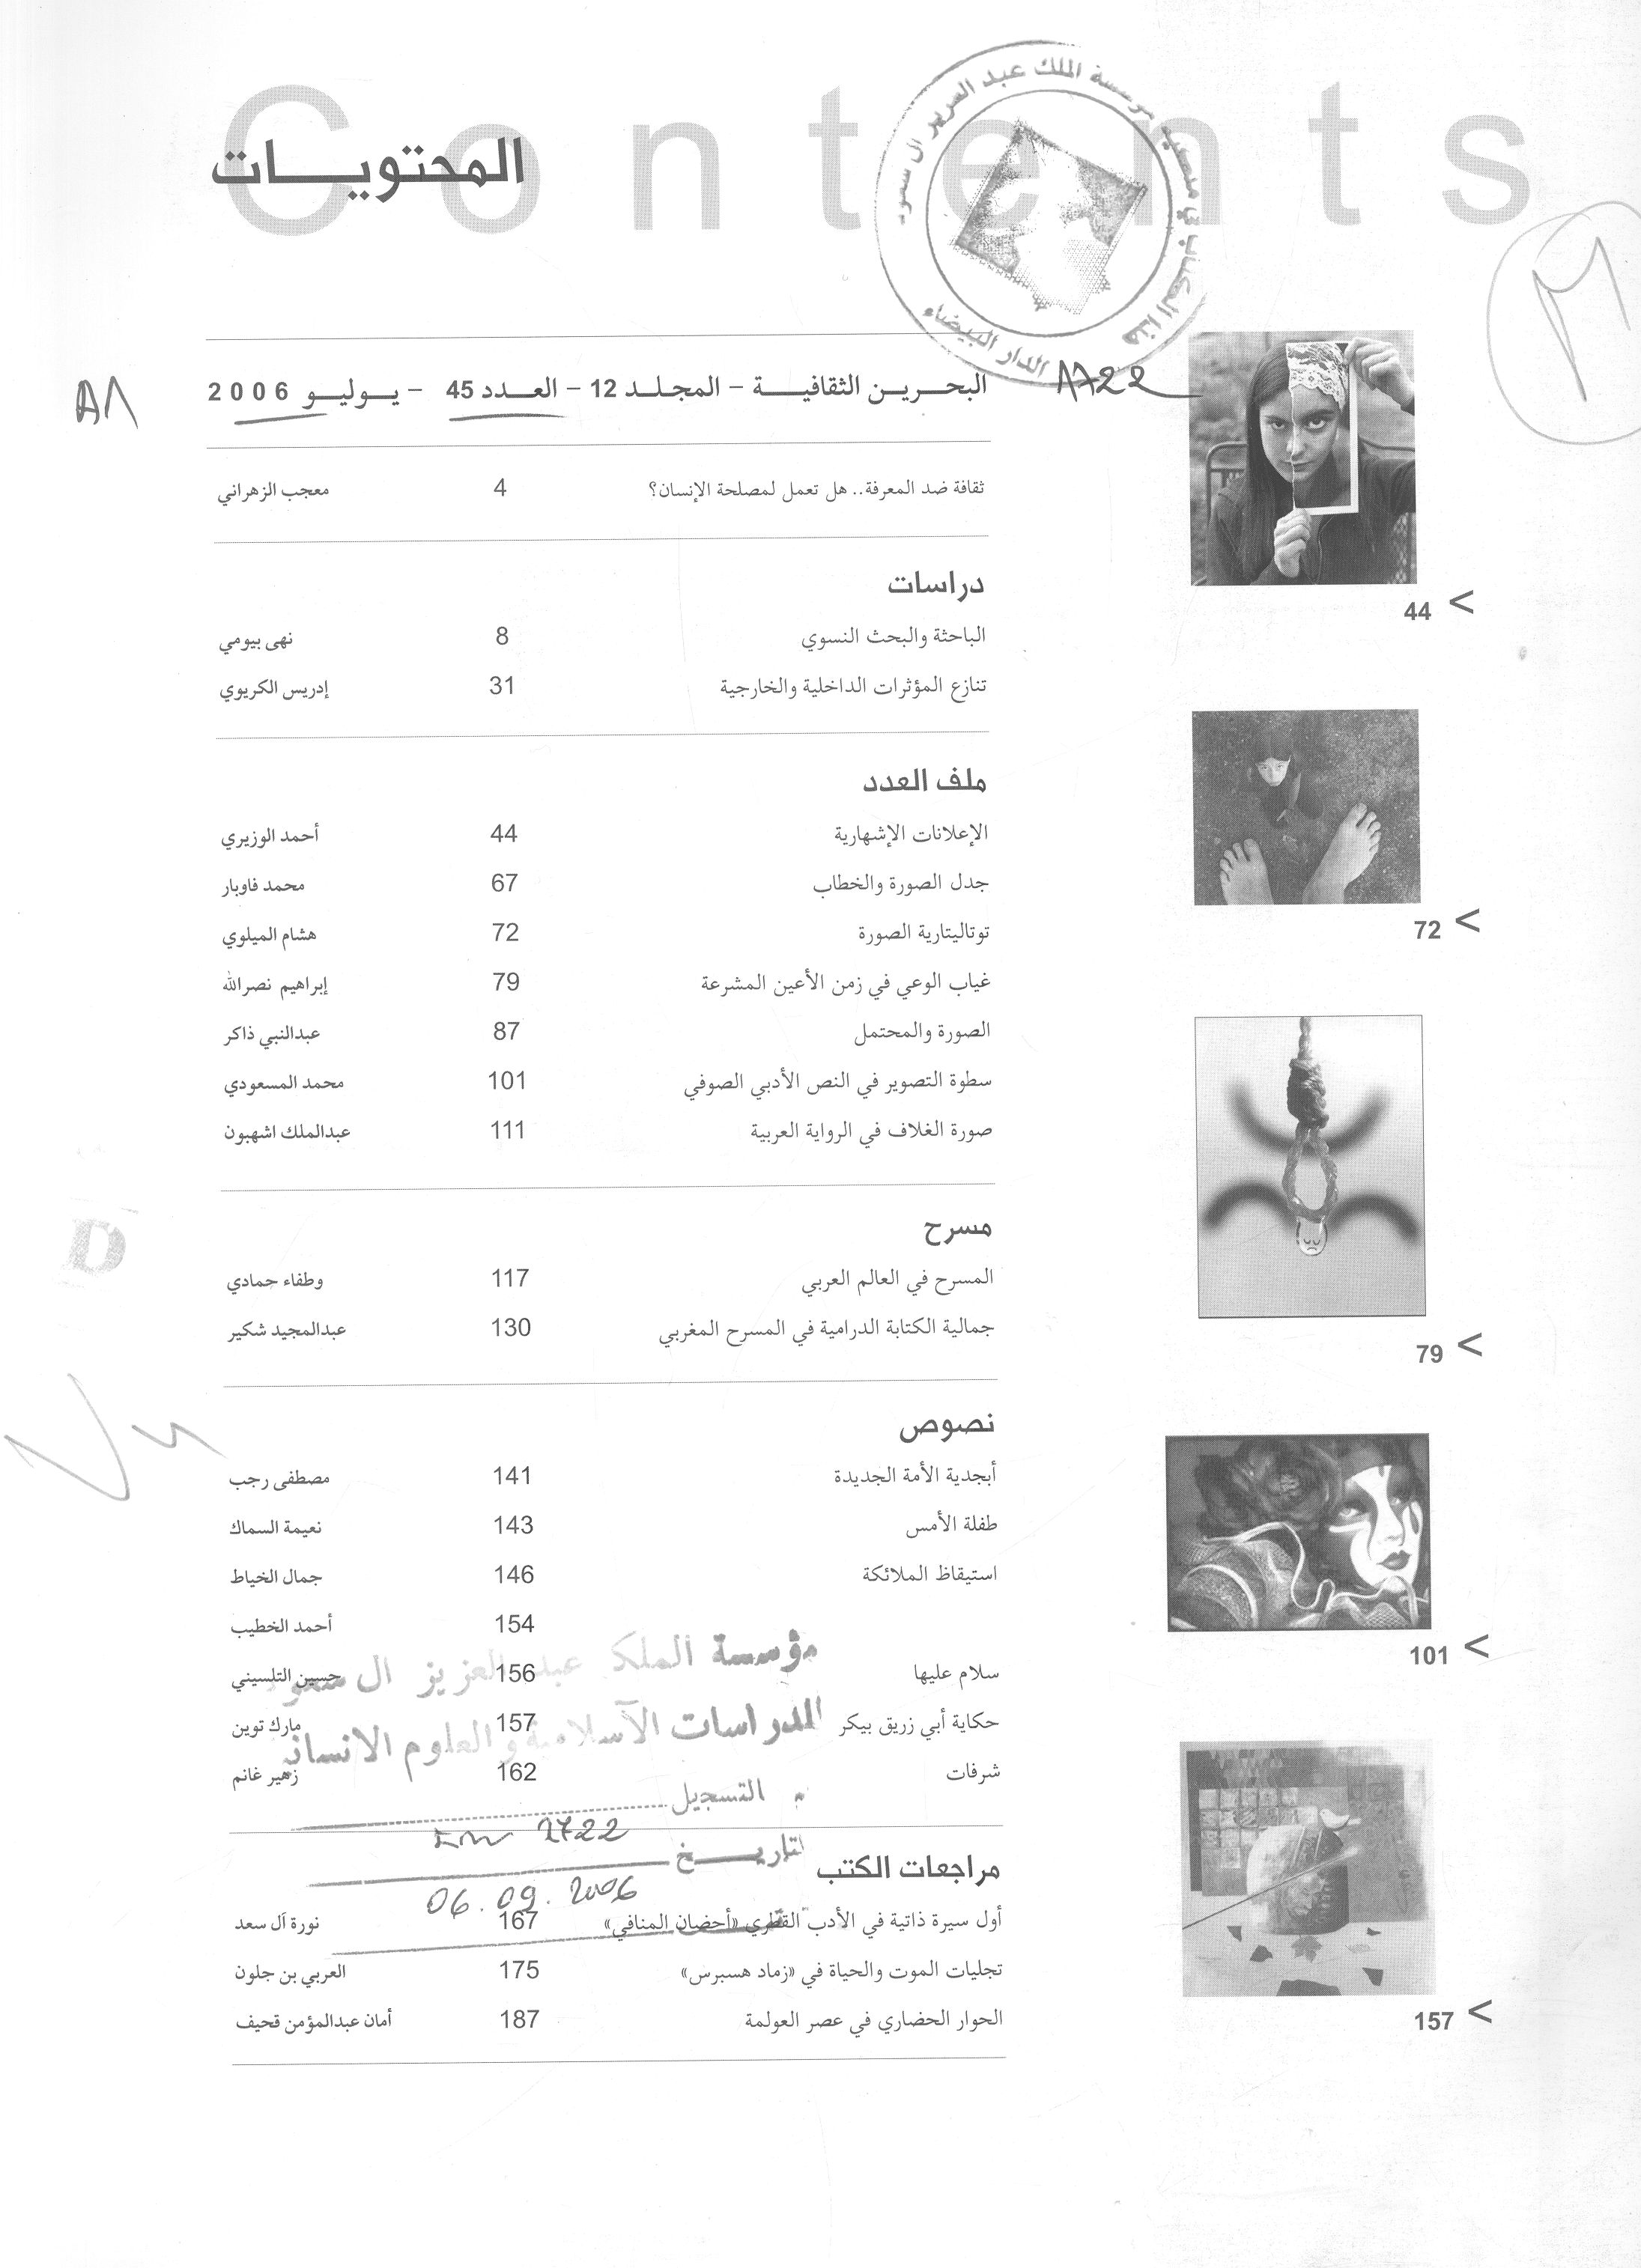 Contents
المحتويات
مؤسسة الملك عبد العزيز ال سعود
الدار البيضاء
1722
A1
البحرين الثقافية – المجلد 12 – العدد 45 – يوليو 2006
ثقافة ضد المعرفة.. هل تعمل لمصلحة الإنسان؟ 4 معجب الزهراني
دراسات
الباحثة والبحث النسوي 8 نهى بيومي
تنازع المؤثرات الداخلية والخارجية 31 إدريس الكريوي
ملف العدد
الإعلانات الإشهارية 44 أحمد الوزيري
جدل الصورة والخطاب 67 محمد فاوبار
توتاليتارية الصورة 72 هشام الميلوي
غياب الوعي في زمن الأعين المشرعة 79 إبراهيم نصرالله
الصورة والمحتمل 87 عبدالنبي ذاكر
سطوة التصوير في النص الأدبي الصوفي 101 محمد المسعودي
صورة الغلاف في الرواية العربية 111 عبدالملك اشهبون
مسرح
المسرح في العالم العربي 117 وطفاء حمادي
جمالية الكتابة الدرامية في المسرح المغربي 130 عبدالمجيد شكير
نصوص
أبجدية الأمة الجديدة 141 مصطفى رجب
طفلة الأمس 143 نعيمة السماك
استيقاظ الملائكة 146 جمال الخياط
154 أحمد الخطيب
سلام عليها 156 حسين التلسيني
حكاية أبي زريق بيكر 157 مارك توين
شرفات 162 زهير غانم
مؤسسة الملك عبد العزيز ال سعود
للدراسات الآسلامية والعلوم الانسان
التسجيل
2722
التاريخ
06.09.2006
مراجعات الكتب
أول سيرة ذاتية في الأدب القطري «أحضان المنافي» 167 نورة آل سعد
تجليات الموت والحياة في «زماد هسبرس» 175 العربي بن جلون
الحوار الحضاري في عصر العولمة 187 أمان عبدالمؤمن قحيف
44 <
72 <
79 <
101 <
157 <
D